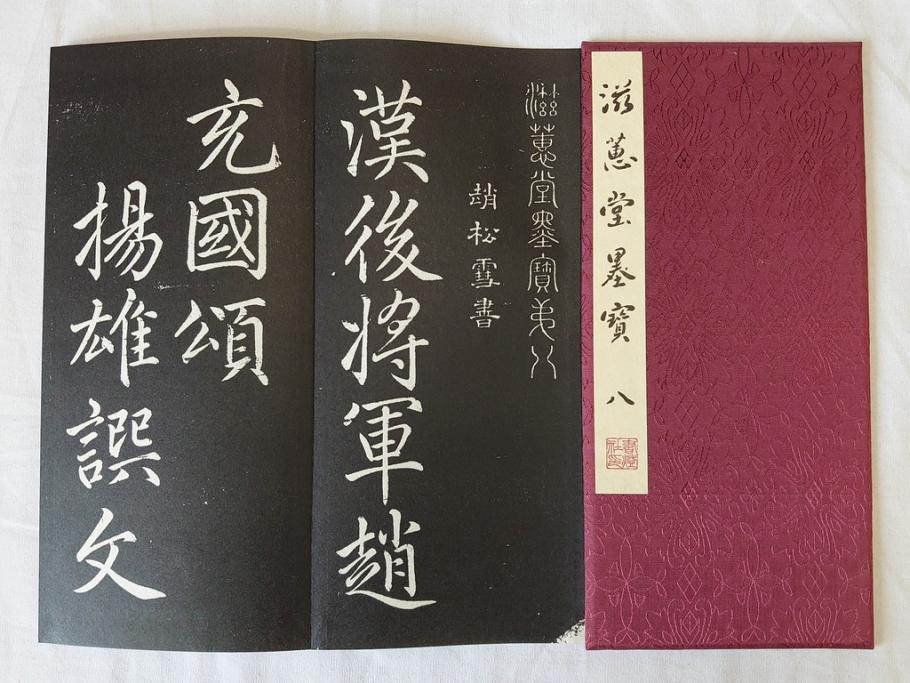 滋蕙堂墨寶 八
滋蕙堂墨寶弟八
趙松雪書
漢後將軍趙
充國頌
揚雄譔文